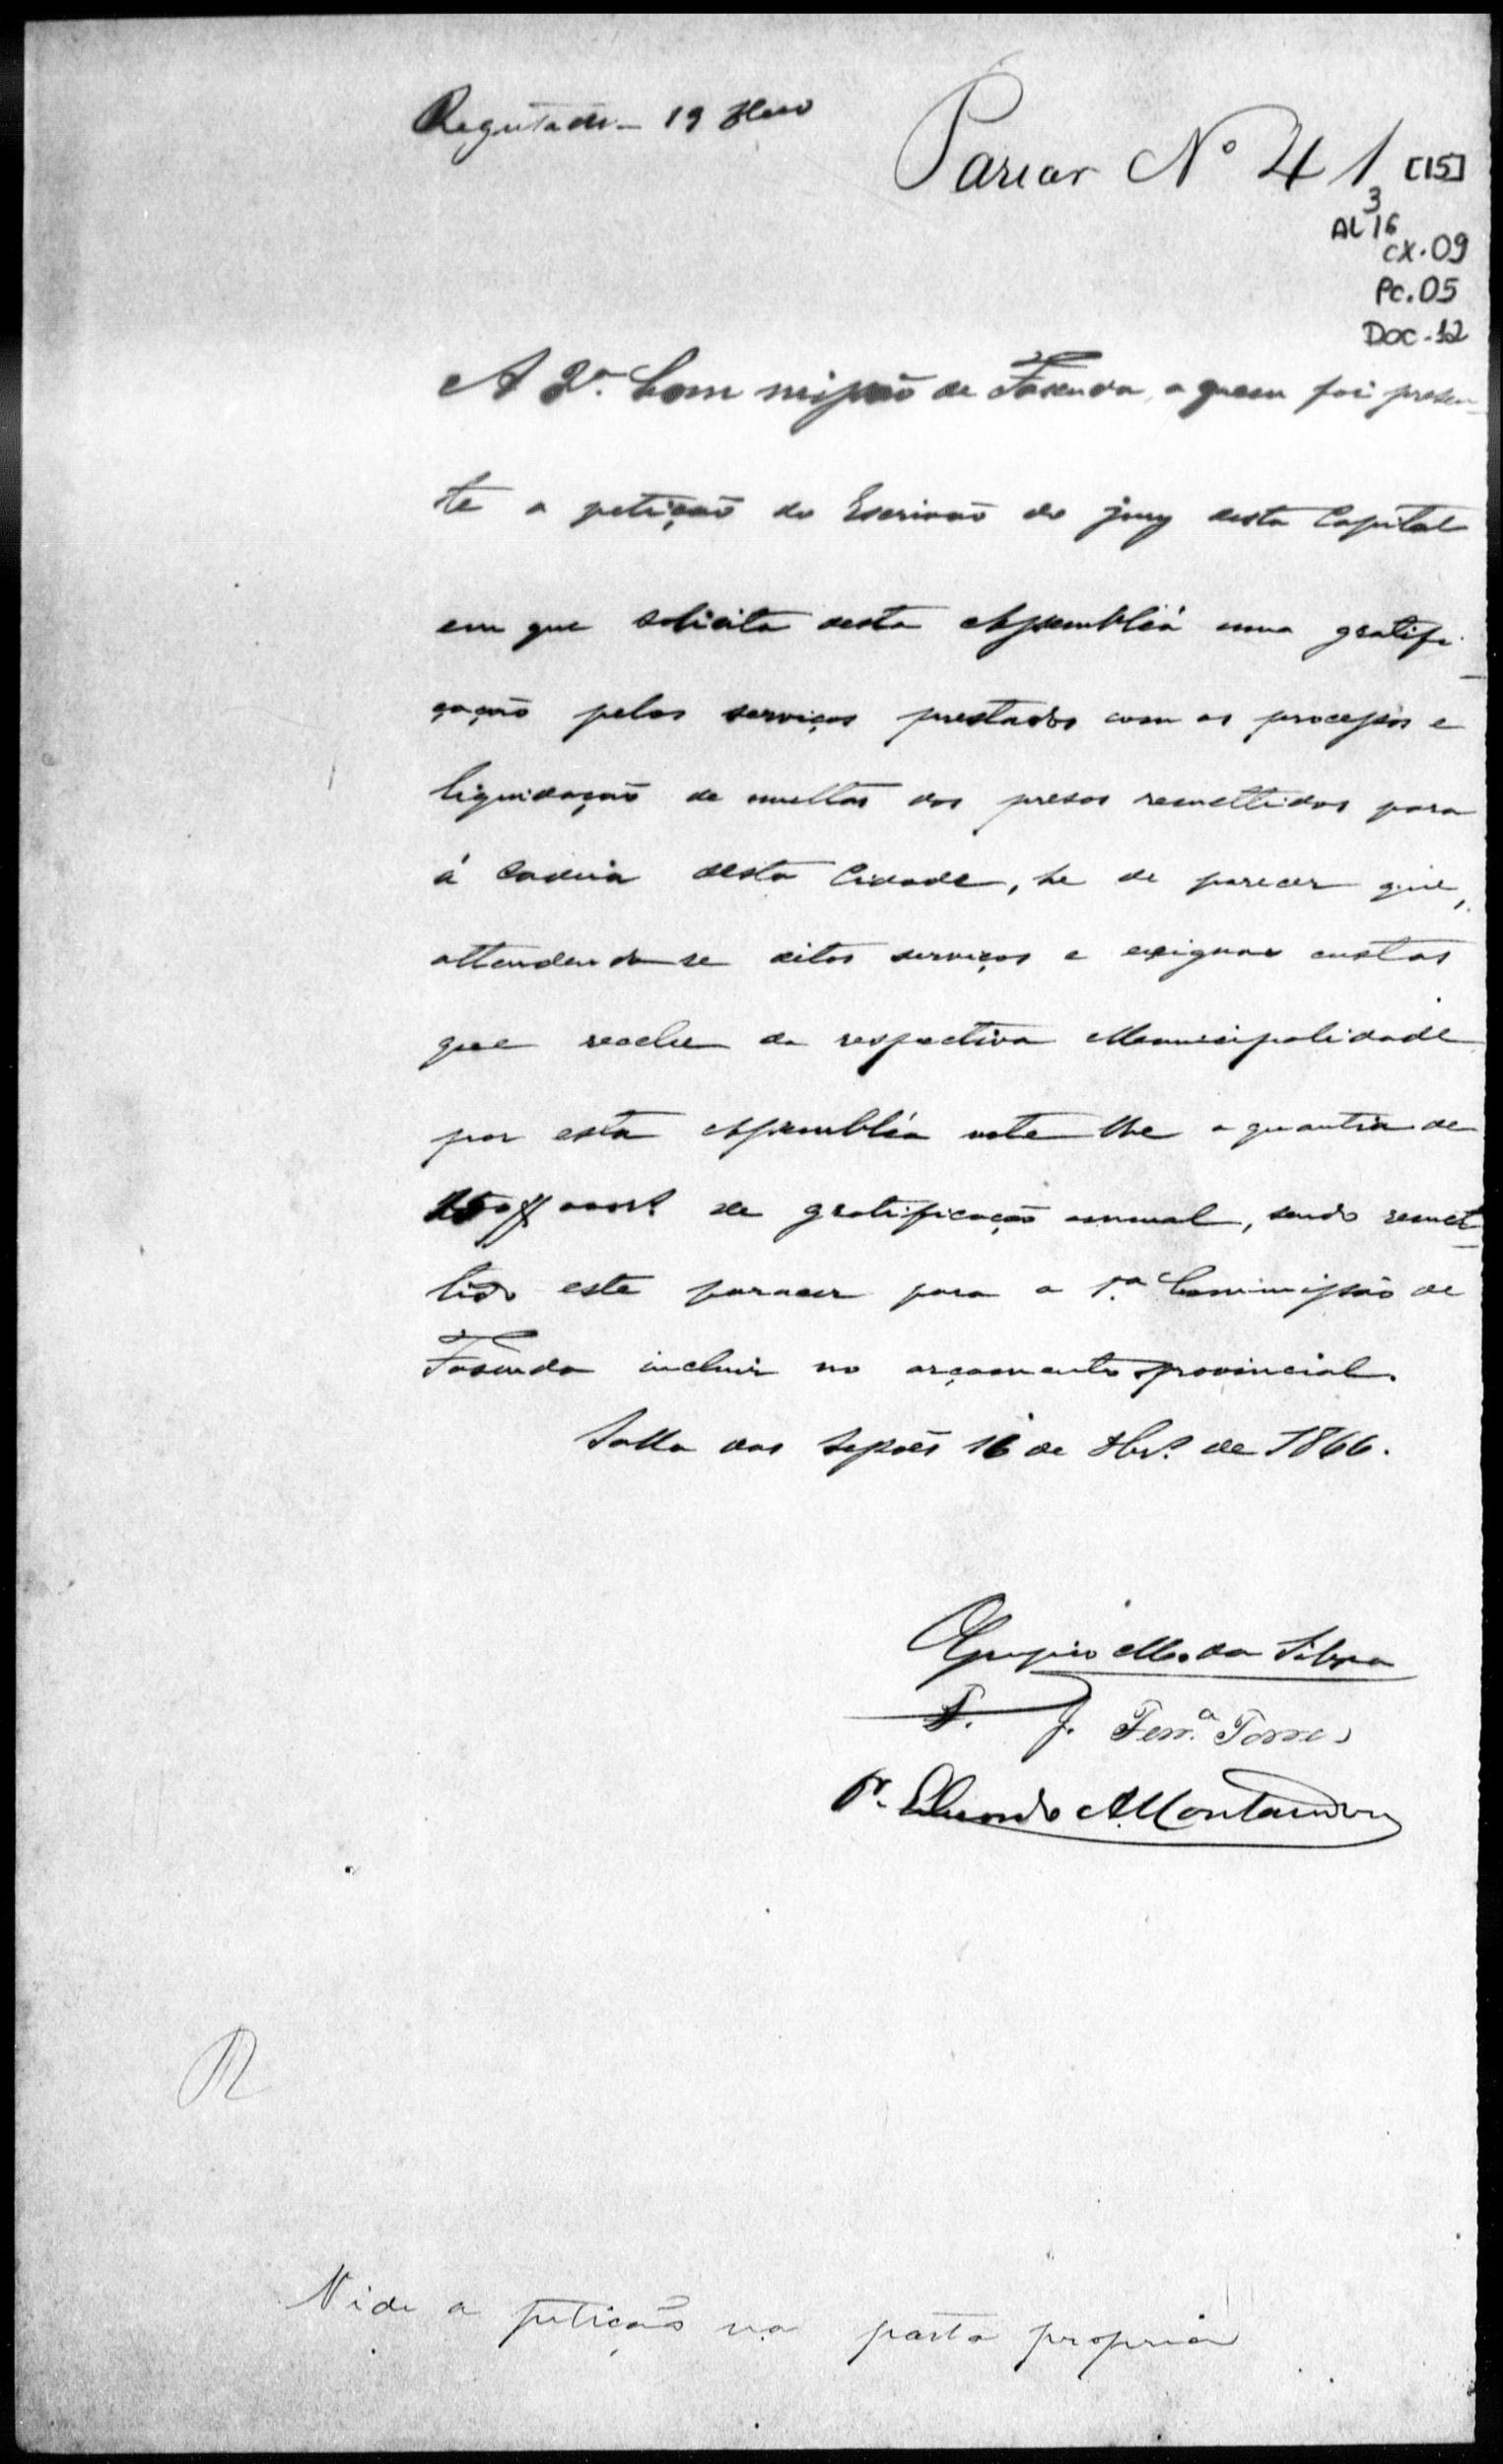 Regeitado - 19 8bro
Parecer Nº 41 [15]
3
AL 16
CX.09
PC.05
Doc.12
A 2ª Commissão de Fasenda, a quem foi presen-
te a petição do Escrivão do jury desta Capital
em que solicita desta Assembléa uma gratifi-
cação pelos serviços prestados com os processos e
liquidação de multas dos presos remettidos para
á Cadeia desta Cidade, he de parecer que,
attendendo-se ditos serviços e exiguas custas
que recebe da respectiva Municipalidade
por esta Assembléa vote-lhe a quantia de
de gratificação annual, sendo remet-
tido este parecer para a 1ª Commissão de
Fasenda incluir no orçamento provincial.
Salla das Sessões 16 de 8br.º de 1866.
Olympio M. da Silva
F. J. Ferr.ª Torres
Dr. Eduardo A. Montandon
R
Vide a petição na pasta propria